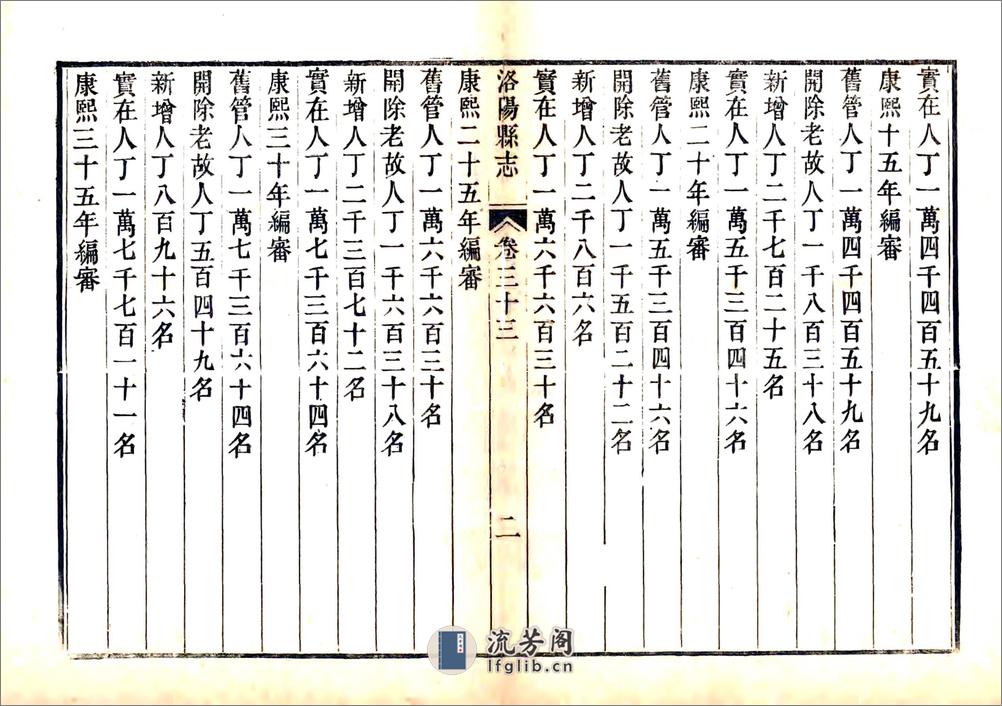 實在人丁一萬四千四百五十九名
康熙十五年編審
舊管人丁一萬四千四百五十九名
開除老故人丁一千八百三十八名
新增人丁二千七百二十五名
實在人丁一萬五千三百四十六名
康熙二十年編審
舊管人丁一萬五千三百四十六名
開除老故人丁一千五百二十二名
新增人丁二千八百六名
實在人丁一萬六千六百三十名
洛陽縣志 卷三十三 二
康熙二十五年編審
舊管人丁一萬六千六百三十名
開除老故人丁一千六百三十八名
新增人丁二千三百七十二名
實在人丁一萬七千三百六十四名
康熙三十年編審
舊管人丁一萬七千三百六十四名
開除老故人丁五百四十九名
新增人丁八百九十六名
實在人丁一萬七千七百一十一名
康熙三十五年編審
流芳阁
lfglib.cn